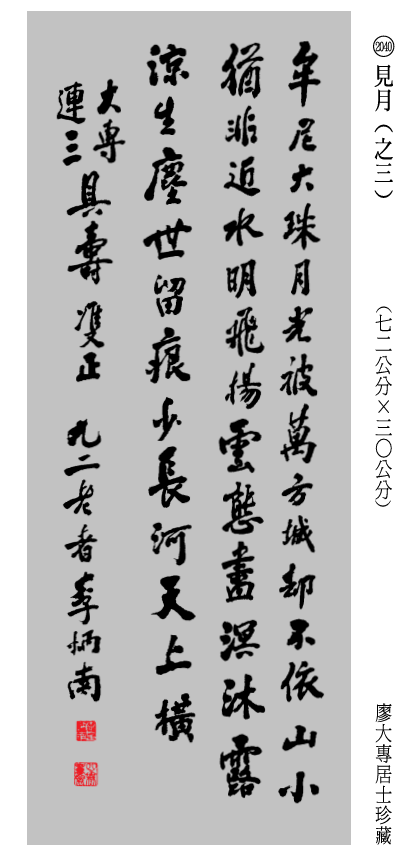 2040 見月(之三) (七二公分×三〇公分) 廖大專居士珍藏
牟尼大珠月光被萬方城却不依山小
猶非近水明飛揚雲態盡溟沐露
涼生塵世留痕少長河天上橫
大專
連三
具壽 雙正 九二老者李炳南